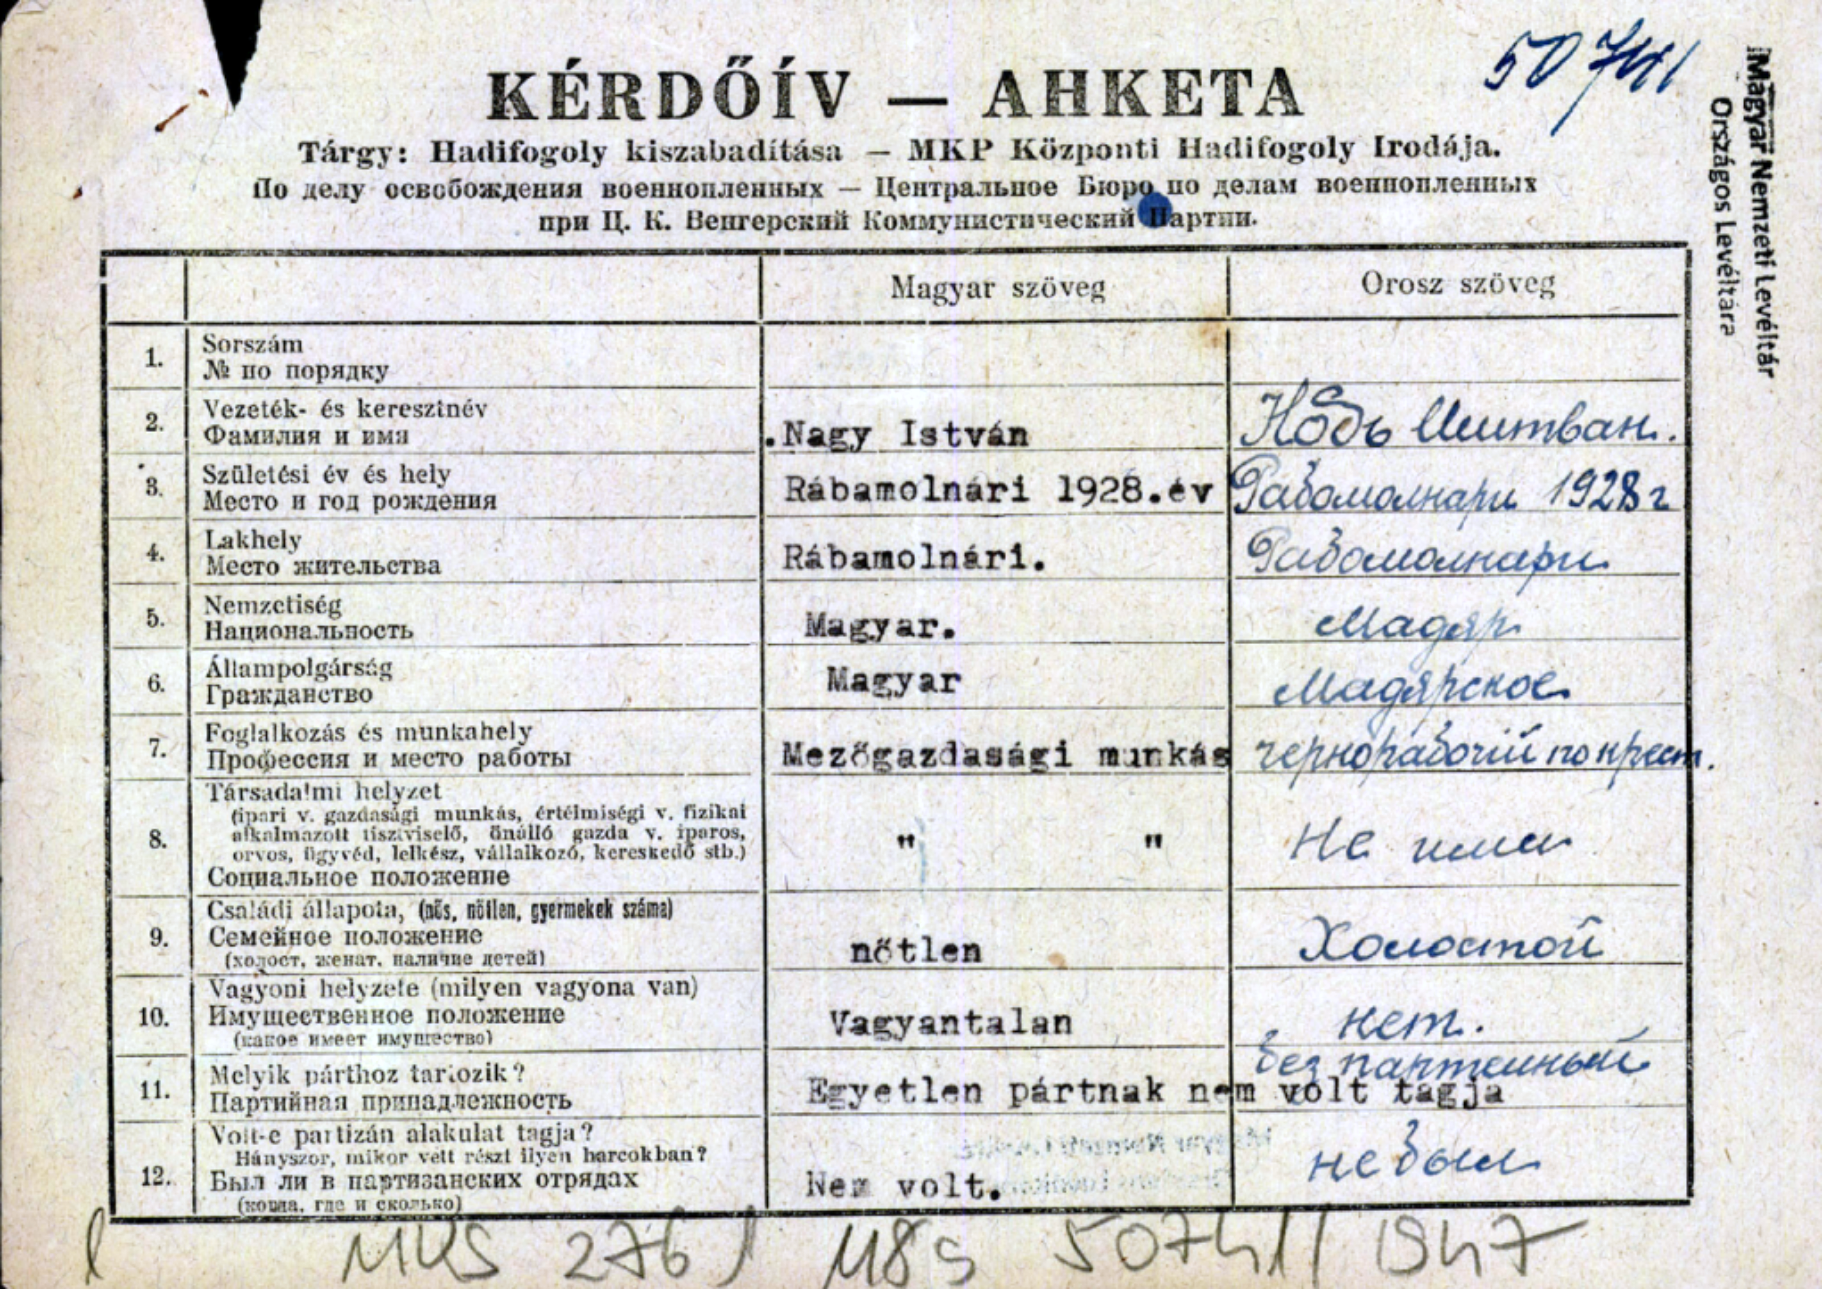 50741
KÉRDŐÍV — АНКЕТА
Tárgy: Hadifogoly kiszabadítása — MKP Központi Hadifogoly Irodája.
По делу освобождения военнопленных — Центральное Бюро по делам военнопленных
при Ц. К. Венгерский Коммунистический Партии.
Magyar Nemzeti Levéltár
Országos Levéltára
Magyar szöveg
Orosz szöveg
1.
Sorszám
№ по порядку
2.
Vezeték- és keresztnév
Фамилия и имя
.Nagy István
Нодь Иштван.
3.
Születési év és hely
Место и год рождения
Rábamolnári 1928.év
Рабомолнари 1928 г
4.
Lakhely
Место жительства
Rábamolnári.
Рабомолнари
5.
Nemzetiség
Национальность
Magyar.
Мадяр
6.
Állampolgárság
Гражданство
Magyar
Мадярское
7.
Foglalkozás és munkahely
Профессия и место работы
Mezőgazdasági munkás
чернорабочий по крест.
8.
Társadalmi helyzet
(ipari v. gazdasági munkás, értelmiségi v. fizikai
alkalmazott tisztviselő, önálló gazda v. iparos,
orvos, ügyvéd, lelkész, vállalkozó, kereskedő stb.)
Социальное положение
" "
Не
9.
Családi állapota, (nős, nőtlen, gyermekek száma)
Семейное положение
(холост, женат, наличие детей)
nőtlen
Холостой
10.
Vagyoni helyzete (milyen vagyona van)
Имущественное положение
(какое имеет имущество)
Vagyantalan
нет.
11.
Melyik párthoz tartozik?
Партийная принадлежность
Egyetlen pártnak nem volt tagja
без партейный
12.
Volt-e partizán alakulat tagja?
Hányszor, mikor vett részt ilyen harcokban?
Был ли в партизанских отрядах
(когда, где и сколько)
Nem volt.
не был
MKS 276 50741/1947